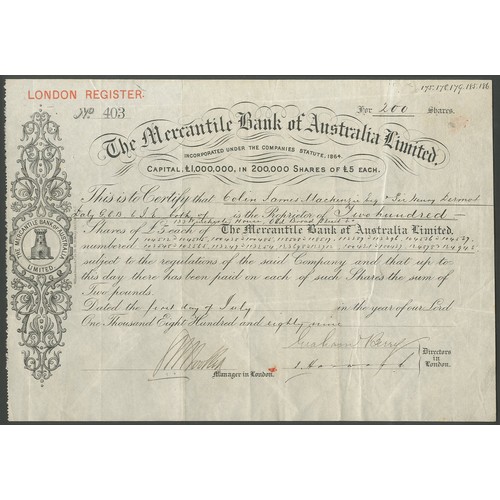 LONDON REGISTER.
175.178.179.185.186
No 403
For 200 Shares.
The Mercantile Bank of Australia Limited.
INCORPORATED UNDER THE COMPANIES STATUTE, 1864.
CAPITAL, £1,000,000, IN 200,000 SHARES OF £5 EACH.
This is to Certify that Colin James Mackenzie Esq & Sir Henry Dermot
Daly G.C.B. C.I.E. both of is the Proprietor of Two hundred
Winchester House, Old Broad Street
Shares of £5 each of The Mercantile Bank of Australia Limited.
numbered
subject to the regulations of the said Company and that up to
this day there has been paid on each of such Shares the sum of
Two pounds.
Dated the first day of July in the year of our Lord
One Thousand Eight Hundred and eighty nine
THE MERCANTILE BANK OF AUSTRALIA
LIMITED.
Graham Berry
Manager in London.
Directors
in
London.